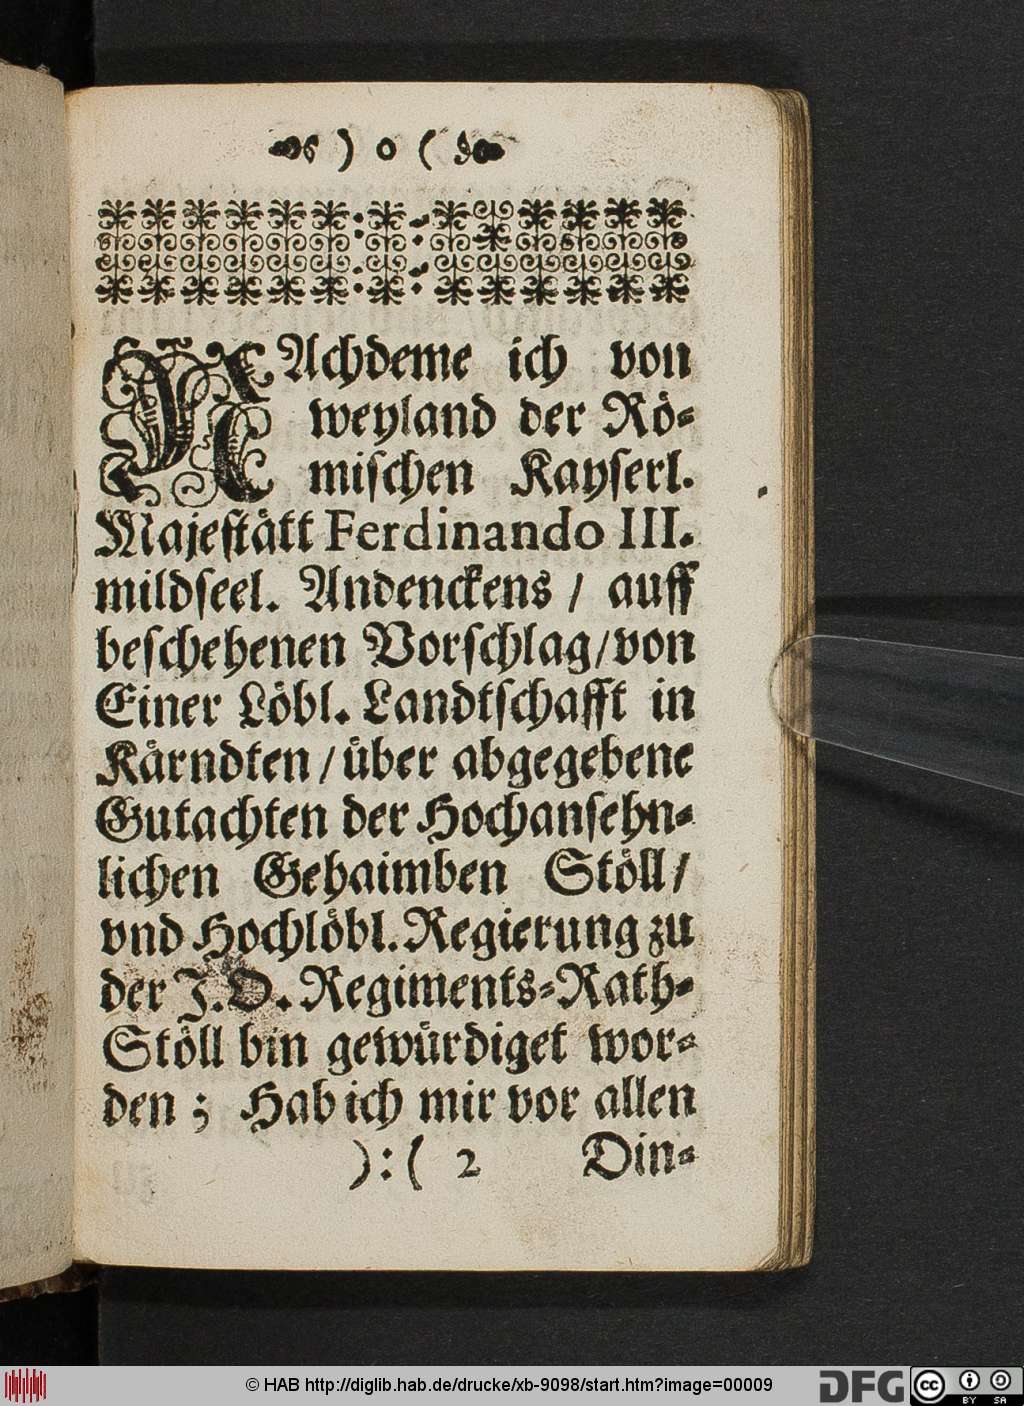 ) o (
NAchdeme ich von
weyland der Rö-
mischen Kayserl.
Majestätt Ferdinando III.
mildseel. Andenckens / auff
beschehenen Vorschlag/von
Einer Löbl. Landtschafft in
Kärndten / über abgegebene
Gutachten der Hochansehn-
lichen Gehaimben Stöll/
vnd Hochlöbl. Regierung zu
der J.O. Regiments-Rath-
Stöll bin gewürdiget wor-
den ; Hab ich mir vor allen
):( 2 Din-
© HAB http://diglib.hab.de/drucke/xb-9098/start.htm?image=00009
DFG
cc BY SA